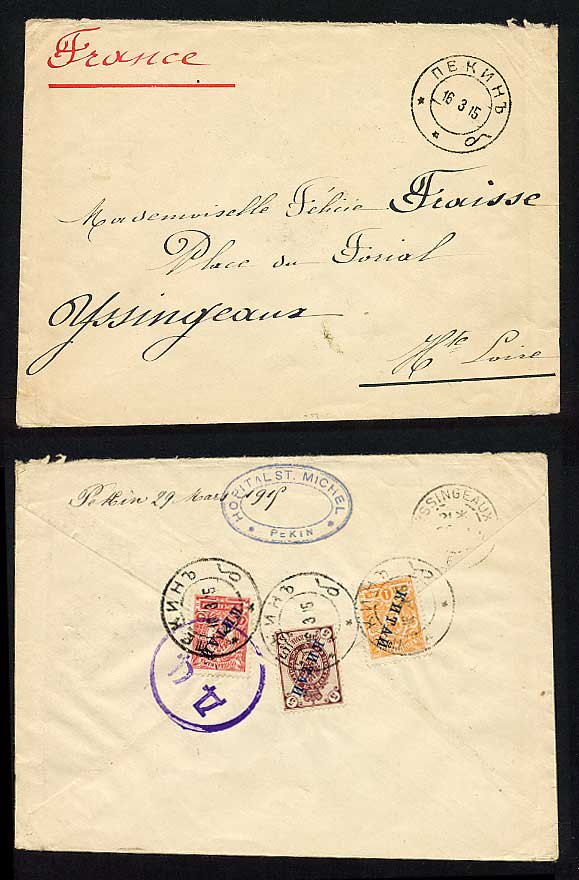 France
ПЕКИНЪ
16 3 15
Mademoiselle Félicie Fraisse
Place du Foirial
Yssingeaux
Hte Loire
Pekin 29 Mars 1915
HOPITAL ST. MICHEL
PEKIN
YSSINGEAUX
ПЕКИНЪ
ПЕКИНЪ
ПЕКИНЪ
КИТАЙ
КИТАЙ
КИТАЙ
Д